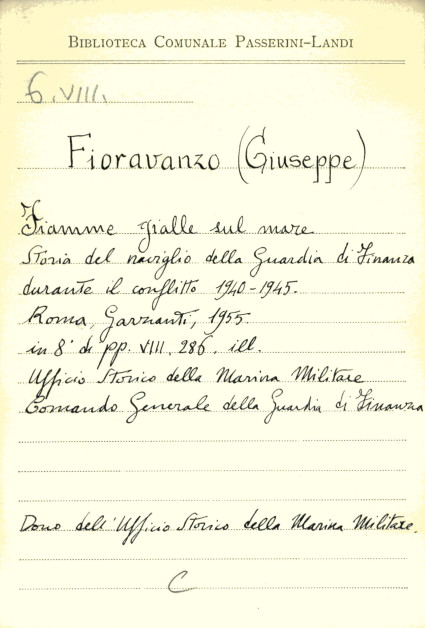 BIBLIOTECA COMUNALE PASSERINI-LANDI
6.VIII.
Fioravanzo (Giuseppe)
Fiamme gialle sul mare
Storia del naviglio della Guardia di Finanza
durante il conflitto 1940-1945.
Roma, Garzanti, 1955.
in 8° di pp. VIII, 286, ill.
Ufficio Storico della Marina Militare
Comando Generale della Guardia di Finanza
Dono dell'Ufficio Storico della Marina Militare.
C